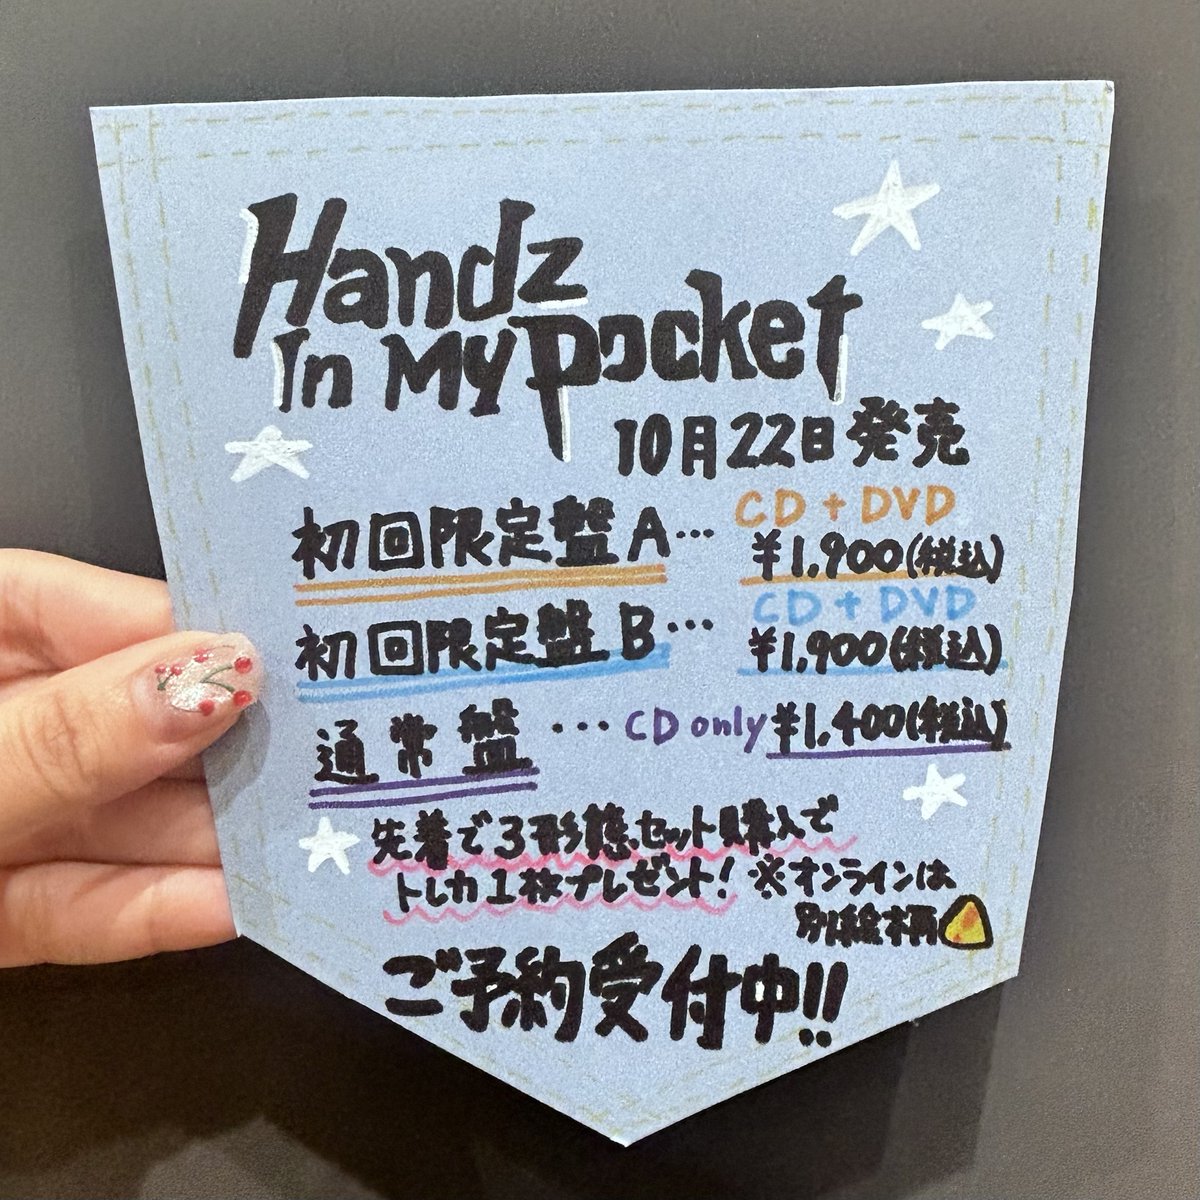 Handz
In My Pocket
10月22日発売
初回限定盤A… CD+DVD
¥1,900(税込)
初回限定盤B… CD+DVD
¥1,900(税込)
通常盤 … CD only ¥1,400(税込)
先着で3形態セット購入で
トレカ1枚プレゼント! ※オンラインは
別絵柄
ご予約受付中!!